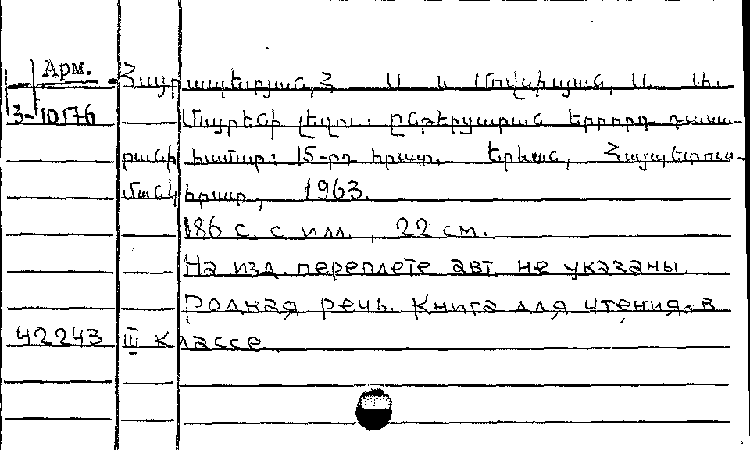 Арм.
Հայրապետյան, Հ. Ա. և Մովսիսյան, Ա. Խ.
3-10176
Մայրենի լեզու: Ընթերցարան երրորդ դասա-
րանի համար: 15-րդ հրատ. Երևան, Հայպետուս-
մանկհրատ, 1963.
186 с. с илл. 22 см.
На изд. переплете авт. не указаны.
Родная речь. Книга для чтения в
42243 III классе